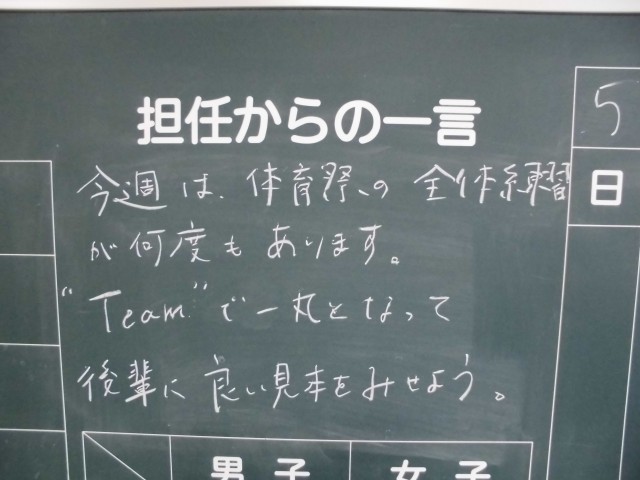 担任からの一言
5
日
今週は、体育祭の全体練習
が何度もあります。
"Team"で一丸となって
後輩に良い見本をみせよう。
男子 女子